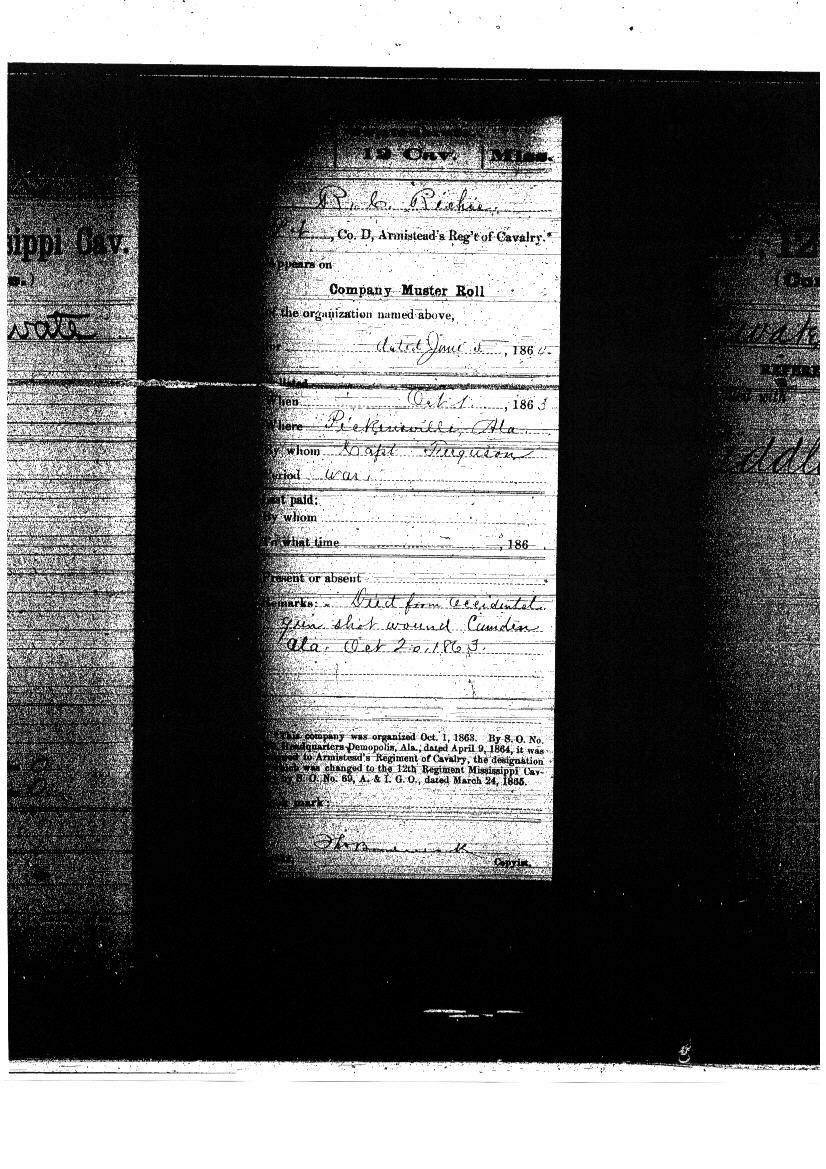 12 Cav. Miss.
R. C. Richie,
, Co. D, Armistead's Reg't of Cavalry.*
Appears on
Company Muster Roll
of the organization named above,
for dated June , 186
Enlisted
When Oct 1, 1863
Where Pickensville, Ala.
By whom Capt Ferguson
Period War,
Last paid:
By whom
To what time , 186 .
Present or absent
Remarks: Died from accidental
gun shot wound Camden
Ala. Oct 20, 1863.
This company was organized Oct. 1, 1863. By S. O. No.
Headquarters Demopolis, Ala., dated April 9, 1864, it was
to Armistead's Regiment of Cavalry, the designation
which was changed to the 12th Regiment Mississippi Cav-
by S. O. No. 69, A. & I. G. O., dated March 24, 1865.
mark:
Copyist.
sippi Cav.
s.)
vate
12
vate
REFERE